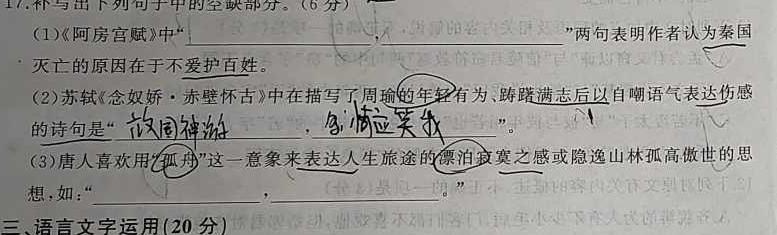 17.补写出下列句子中的空缺部分。(6分)
(1)《阿房宫赋》中“____________，____________”两句表明作者认为秦国
灭亡的原因在于不爱护百姓。
(2)苏轼《念奴娇·赤壁怀古》中在描写了周瑜的年轻有为、踌躇满志后以自嘲语气表达伤感
的诗句是“故国神游，多情应笑我”。
(3)唐人喜欢用“孤舟”这一意象来表达人生旅途的漂泊寂寞之感或隐逸山林孤高傲世的思
想,如:“____________，____________。”
三、语言文字运用(20分)